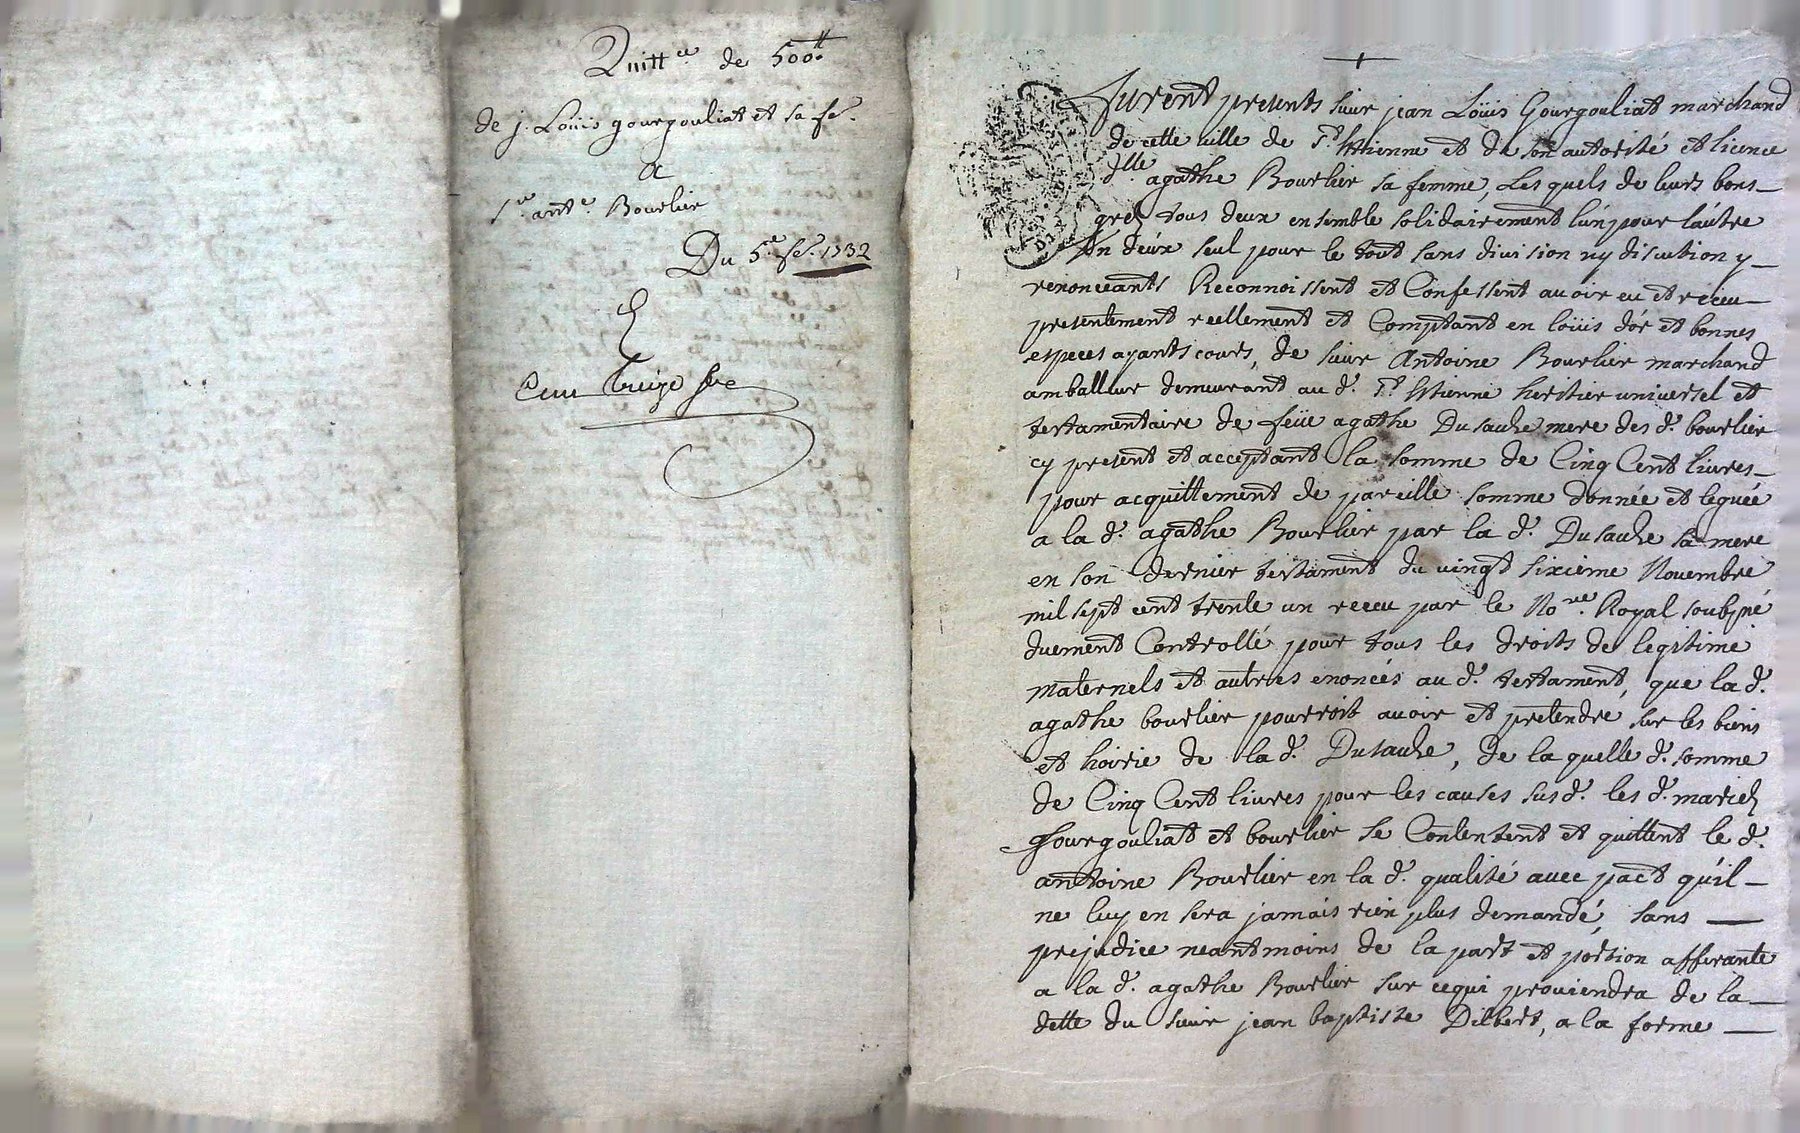 Quitt.ce de 500 lt
de j. Loüis gourgouliat et sa fe.
a
sr. ant.e Bourlier
Du 5.e fe. 1732
Cent treize
+
furent presents sieur jean Loüis Gourgouliat marchand
de cette ville de St. Ettienne et de son autorité et licence
dlle. agathe Bourlier sa femme, Les quels de leurs bons-
gréz tous deux ensemble solidairement lún pour láutre
Un déux seul pour le tout sans division ny discution y-
renonceants Reconnoissent et Confessent auoir eu et receu-
presentement reellement et Comptant en loüis dór et bonnes
especes ayants cours, de sieur Antoine Bourlier marchand
amballeur demeurant au d. St. Ettienne heritier universel et
testamentaire de feüe agathe Dusauze mere des d. bourlier
cy present et acceptant la somme de Cinq Cent livres-
pour acquittement de pareille somme donnée et leguée
a la d. agathe Bourlier par la d. Dusauze sa mere
en son dernier testament du vingt sixieme Nouembre
mil sept cent trente un receu par le No.re Royal soubsné
duement Controllé pour tous les droits de legitime
maternels et autres enoncés au d. testament, que la d.
agathe bourlier pourroit auoir et pretendre sur les biens
et hoirie de la d. Dusauze, de la quelle d. somme
de Cinq Cent livres pour les causes sus d. les d. mariez
Gourgouliat et bourlier se Contentent et quittent le d.
antoine Bourlier en la d. qualité auec pact qúil-
ne luy en sera jamais rien plus demandé, sans -
prejudice neantmoins de la part et portion afferante
a la d. agathe Bourlier sur cequi prouiendra de la-
dette du sieur jean baptiste Dilbert, a la forme -